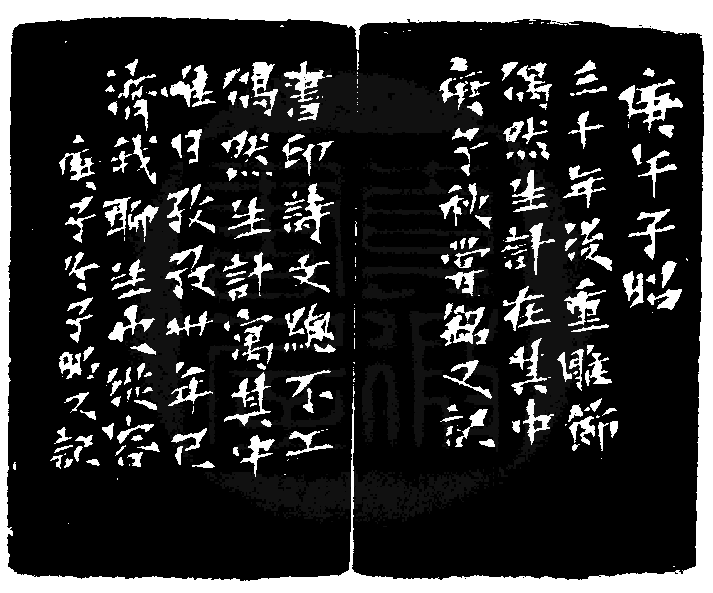 庚午子昭
三十年後重雕飾
偶然生計在其中
庚子秋又記
書印詩文總不工
偶然生計寓其中
唯日孜孜卅年已
濟我聊生也從容
庚子冬子昭又記